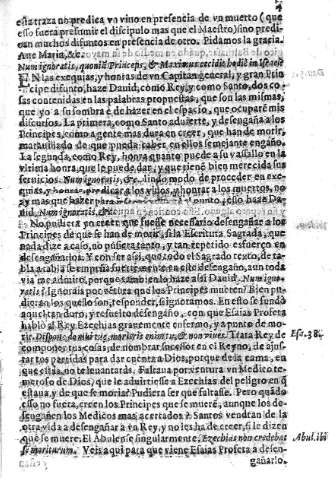 esta traza no predica vn viuo en presencia de vn muerto (que
esso fuera presumir el discipulo mas que el Maestro) sino predi
can muchos difuntos en presencia de otro. Pidamos la gracia.
Aue Maria, &c.
Num ignoratis, quoniã Princeps, & Maximus cecidit hodiè in Israel?
EN las exequias, y honras de vn Capitan general, y gran Prin
cipe difunto, haze Dauid, como Rey, y como Santo, dos co-
sas contenidas en las palabras propuestas, que son las mismas,
que yo a su sombra è de hazer en el espacio, que ocuparè mis
discursos. La primera, como Santo aduierte, y desengaña a los
Principes, como a gente mas dura en creer, que han de morir,
marauillado de que pueda caber en ellos semejante engaño.
La segunda, como Rey, honra quanto puede a su vasallo en la
vltima honra, que le puede dar, y que tiene bien merecida sus
seruicios. Num ignoratis, &c. lindo modo de proceder en exe-
quias, y honras, predicar a los viuos, y honrar a los muertos, no
ay mas que hazer para el punto, esso haze Da
uid. Num ignoratis, &c.
No pudiera yo creer, que fuesse necessario desengañar a los
Principes de que se han de morir, si la Escritura Sagrada, que
nada dize a caso, no pusiera tanto, y tan repetido esfuerço en
desengañarlos. Y con ser assi, que todo el Sagrado texto, de ta-
bla a tabla se emplea en este desengaño, aun toda
via me admiro, porque tambien lo haze assi Dauid. Num igno-
ratis? Ignorais por ventura que los Principes mueren? Bien pu-
dieran los que lo son, responder, si ignoramos. En esto se fundò
aquel tan duro, y resuelto desengaño, con que Esaias Profeta
hablò al Rey Ezechias grauemente enfermo, y a punto de mo-
rir. Dispone domui tuæ, morieris enim tu, & non viues. Trata Rey de
componer tus cosas, y de nombrar sucessor en el Reyno, de ajus-
tar tus partidas para dar cuenta a Dios, porque de la cama, en
que estàs, no te leuantaràs. Faltaua por ventura vn Medico te-
meroso de Dios, que le aduirtiesse a Ezechias del peligro en q̃
estaua, y de que se moria? Pudiera ser que faltasse. Pero quãdo
esso no fuera, creen los Principes que se muere, aunque los de-
sengañen los Medicos mas acertados? Santos vendran de la
otra vida a desengañar a vn Rey, y no les ha de creer, si le dizen
que se muere. El Abulense singularmente, Ezechias non credebat
se moriturum. Veis aqui para que viene Esaias Profeta a desen-
gañarlo.
Esa. 38.
Abul. ibi